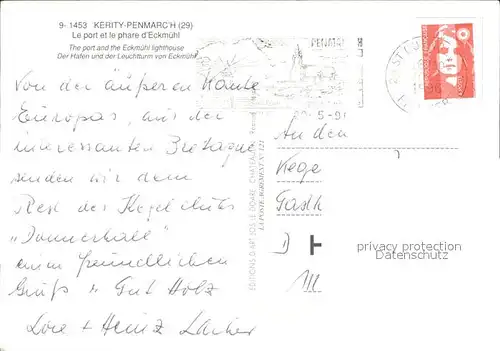 9- 1453 KERITY-PENMARC'H (29)
Le port et le phare d'Eckmühl
The port and the Eckmühl lighthouse
Der Hafen und der Leuchtturm von Eckmühl
Von der äußeren Kante
Europas, aus der
interessanten Bretagne
senden wir dem
Rest des Kegelclubs
"Donnerhall"
einen freundlichen
Gruß u. Gut Holz
Lore + Heinz
PENMARC'H
An den
Kege
Gasth
D
EDITIONS D'ART JOS LE DOARE, CHATEAULIN
LA POSTE AGREMENT N° 121
privacy protection
akpool.com